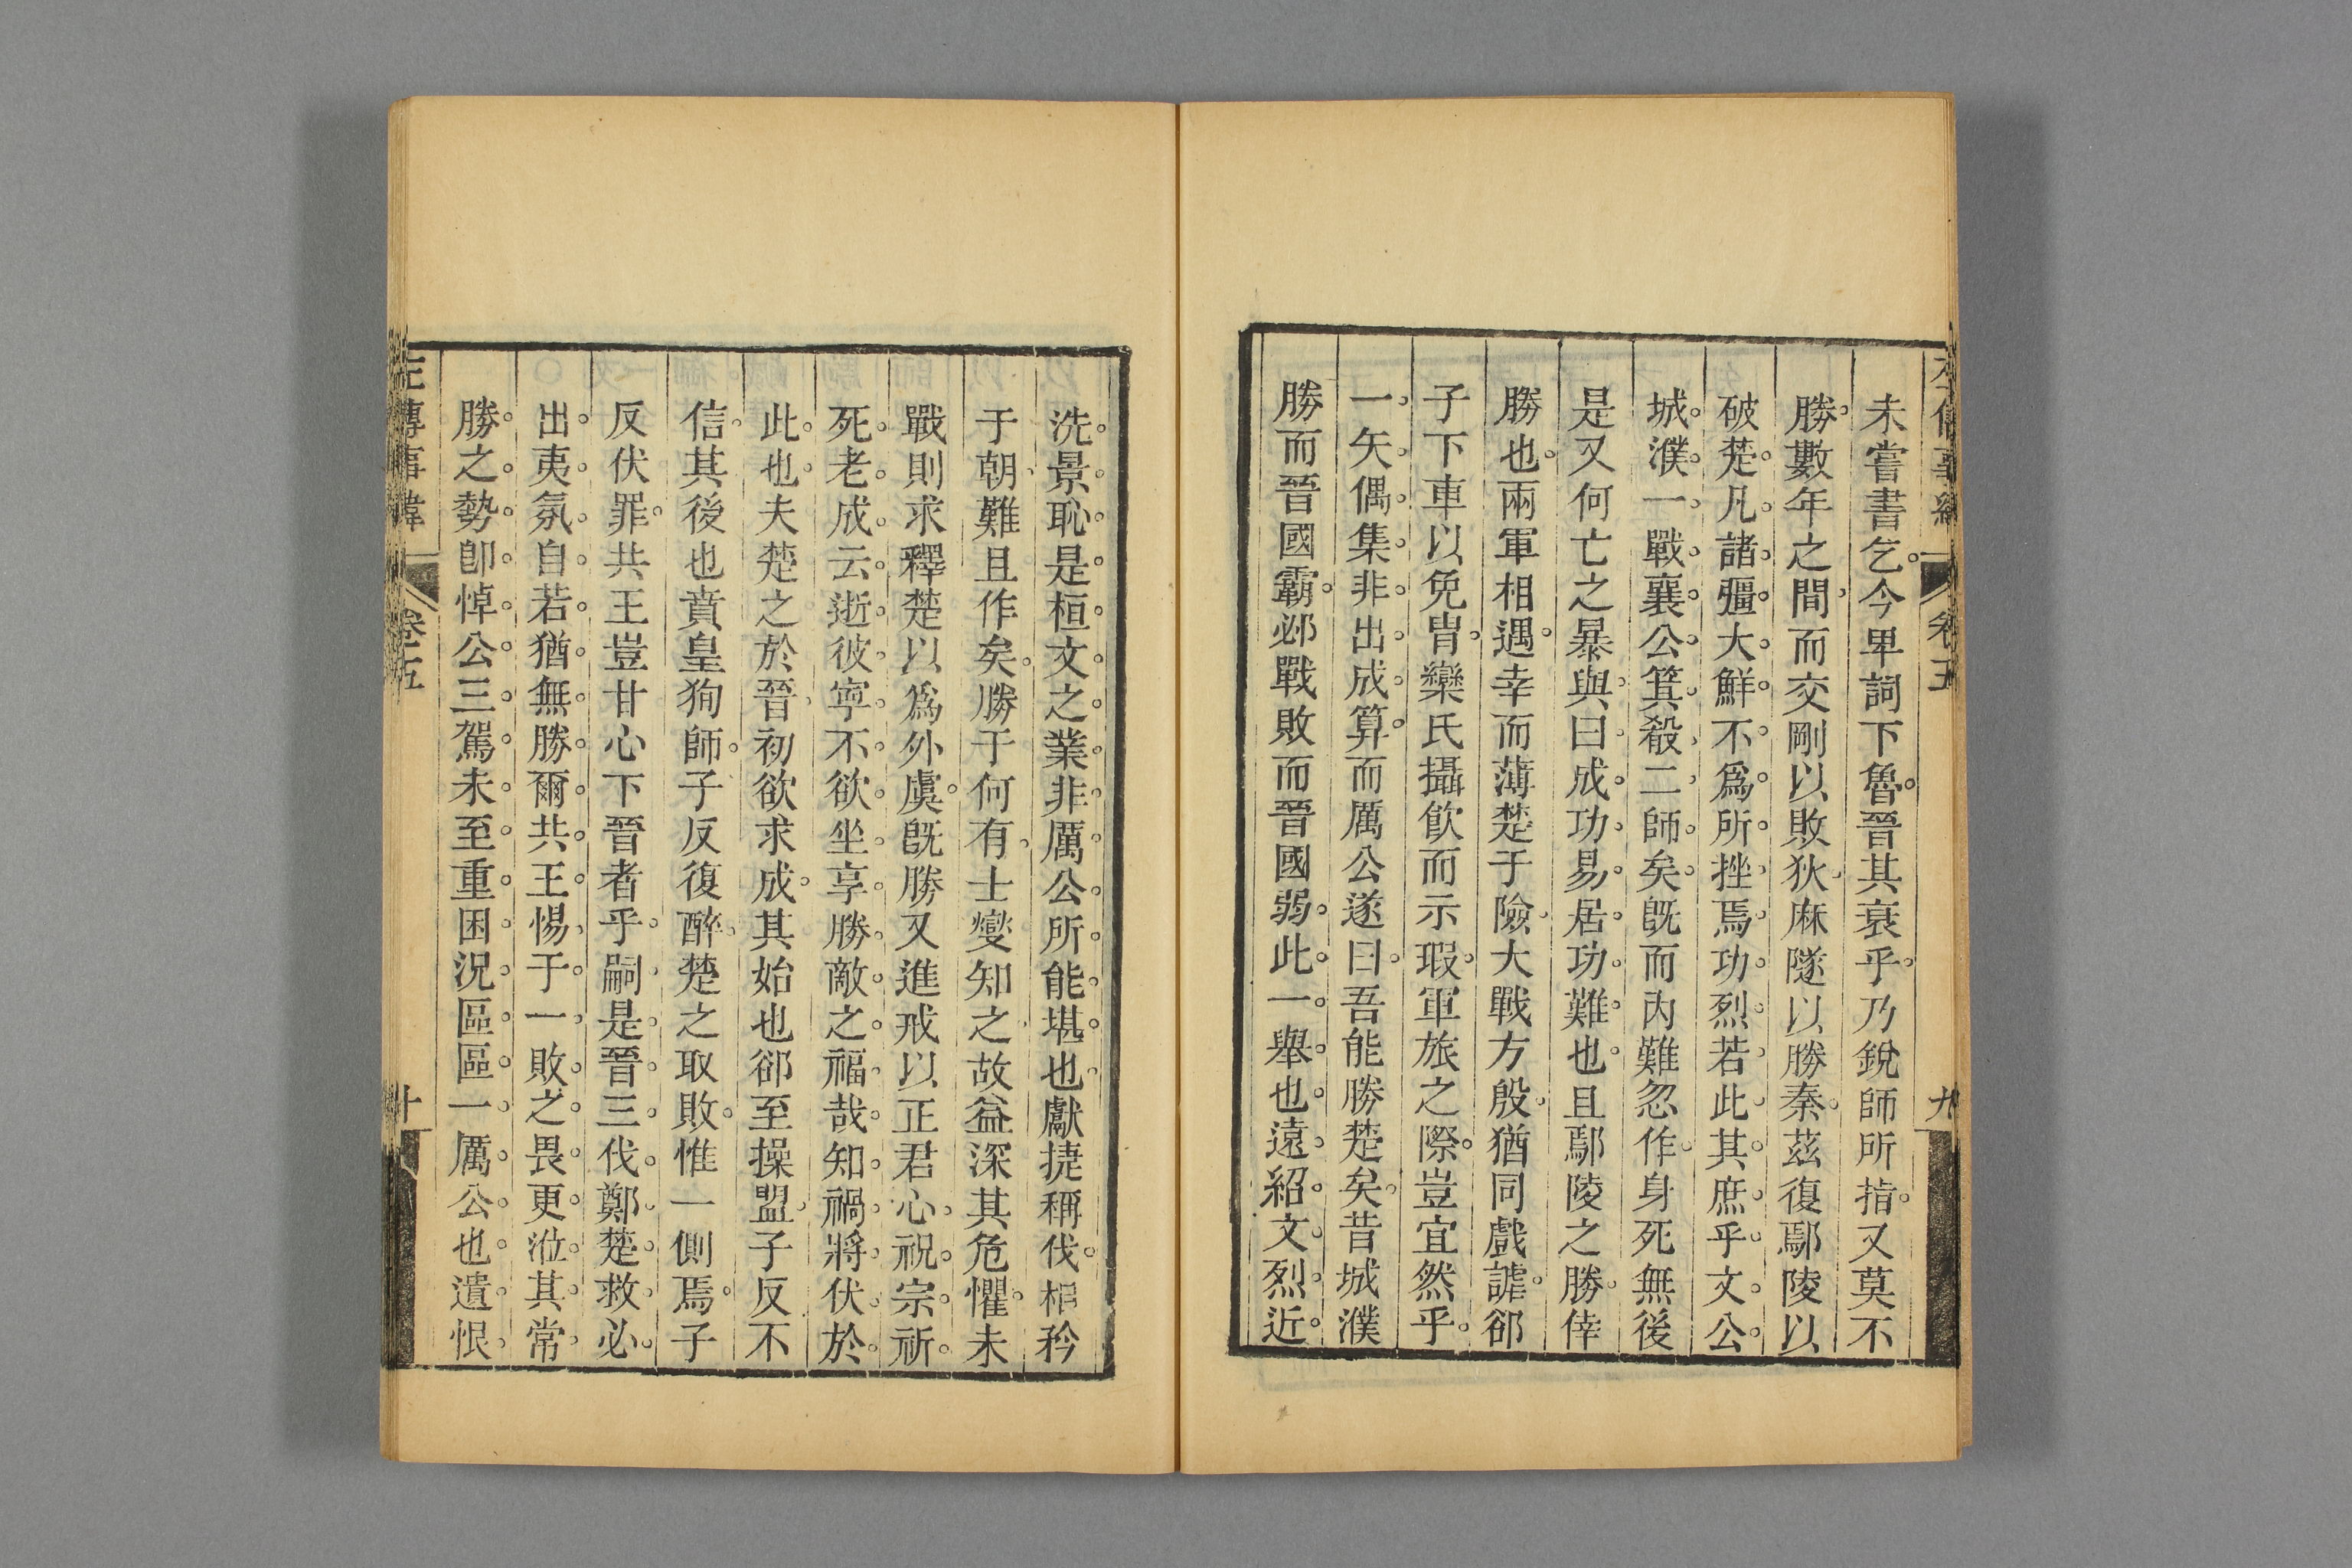 未嘗書乞今卑詞下魯晉其衰乎乃銳師所指又莫不
勝數年之間而交剛以敗狄麻隧以勝秦茲復鄢陵以
破楚凡諸彊大鮮不爲所挫焉功烈若此其庶乎文公
城濮一戰襄公箕殽二師矣旣而內難忽作身死無後
是又何亡之暴與曰成功易居功難也且鄢陵之勝倖
勝也兩軍相遇幸而薄楚于險大戰方殷猶同戲謔郤
子下車以免冑欒氏攝飮而示瑕軍旅之際豈宜然乎
一矢偶集非出成算而厲公遂曰吾能勝楚矣昔城濮
勝而晉國霸邲戰敗而晉國弱此一舉也遠紹文烈近
卷五
九
洗景恥是桓文之業非厲公所能堪也獻捷稱伐相矜
于朝難且作矣勝于何有士燮知之故益深其危懼未
戰則求釋楚以爲外虞旣勝又進戒以正君心祝宗祈
死老成云逝彼寧不欲坐享勝敵之福哉知禍將伏於
此也夫楚之於晉初欲求成其始也郤至操盟子反不
信其後也賁皇狥師子反復醉楚之取敗惟一側焉子
反伏罪共王豈甘心下晉者乎嗣是晉三伐鄭楚救必
出夷氛自若猶無勝爾共王惕于一敗之畏更涖其常
勝之勢卽悼公三駕未至重困況區區一厲公也遺恨
左傳事緯
卷五
十